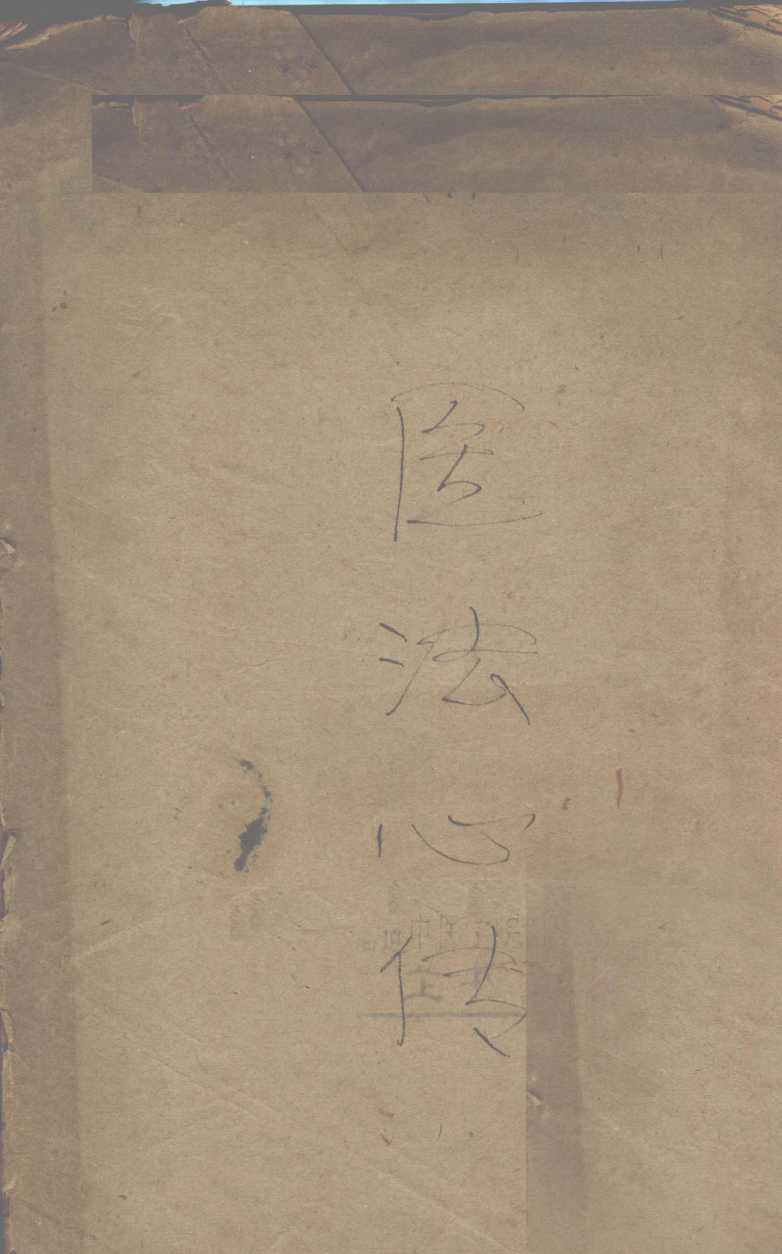 医法心传